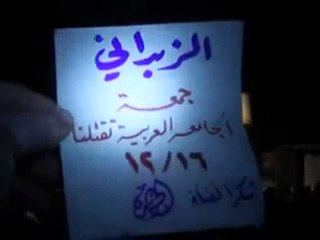 الزبداني
جمعة
الجامعه العربية تقتلنا
١٢/١٦
شكرا لقناة الجزيرة